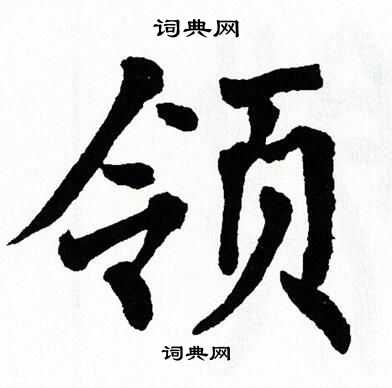 词典网
领
词典网